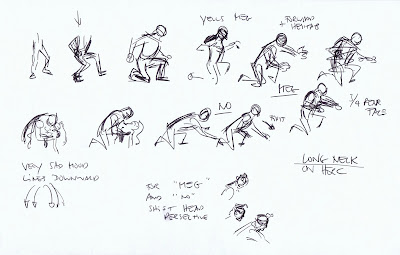 YELLS MEG
FORWARD
+ HESITATE
MEG
3/4 REAR
FACE
NO
WAIT
VERY SAD MOOD
LINES DOWNWARD
FOR "MEG"
AND "NO"
SHIFT HEAD
PERSPECTIVE
LONG NECK
ON HERC